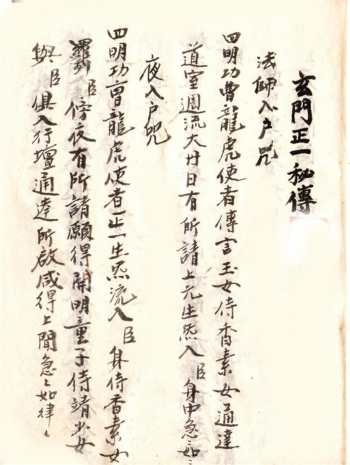 玄門正一秘傳
法師入户咒
四明功曹龍虎使者傳言玉女侍香素女通達
道室週流大廿日有所請上元生炁入臣身中急如
夜入户咒
四明功曹龍虎使者正一生炁流入臣身侍香素女
羅列臣傍夜有所請願得開明童子侍靖素女
與臣俱入行壇通達所啟咸得上聞急〻如律〻